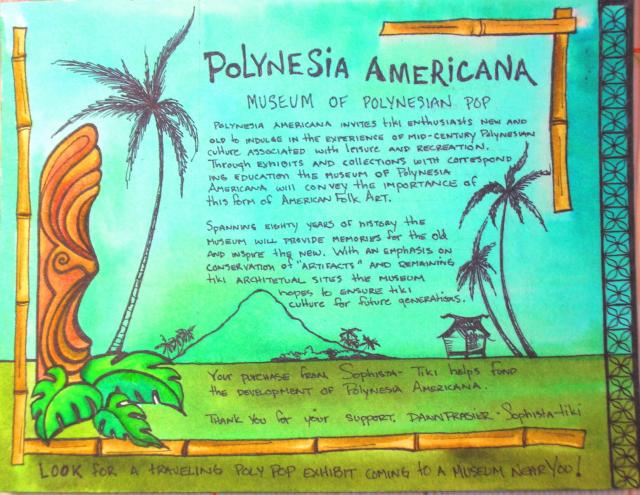 POLYNESIA AMERICANA
MUSEUM OF POLYNESIAN POP
POLYNESIA AMERICANA INVITES tiki ENTHUSIASTS NEW AND
OLD to INDULGE IN THE EXPERIENCE OF MID-CENTURY POLYNESIAN
culture ASSOCIATED WITH leisure AND RECREATION.
Through EXHIBITS AND COLLECTIONS WITH CORRESPOND
ING EDUCATION THE MUSEUM OF POLYNESIA
AMERICANA WILL CONVEY THE IMPORTANCE OF
this form of AMERICAN FOLK ART.
SPANNING EIGHTY YEARS OF HISTORY THE
MUSEUM WILL PROVIDE MEMORIES for the old
AND INSPIRE the NEW. WITH AN EMPHASIS ON
CONSERVATION of "ARTIFACTS" AND REMAINING
tiki ARCHITETUAL SITES THE MUSEUM
hopes to ENSURE tiki
culture for future generations.
YOUR PURCHASE FROM Sophista-Tiki helps fund
the DEVELOPMENT of POLYNESIA AMERICANA.
THANK YOU for your support. DAWN FRASIER - Sophista-tiki
LOOK for A TRAVELING POLY POP EXHIBIT COMING to A MUSEUM NEAR YOU!